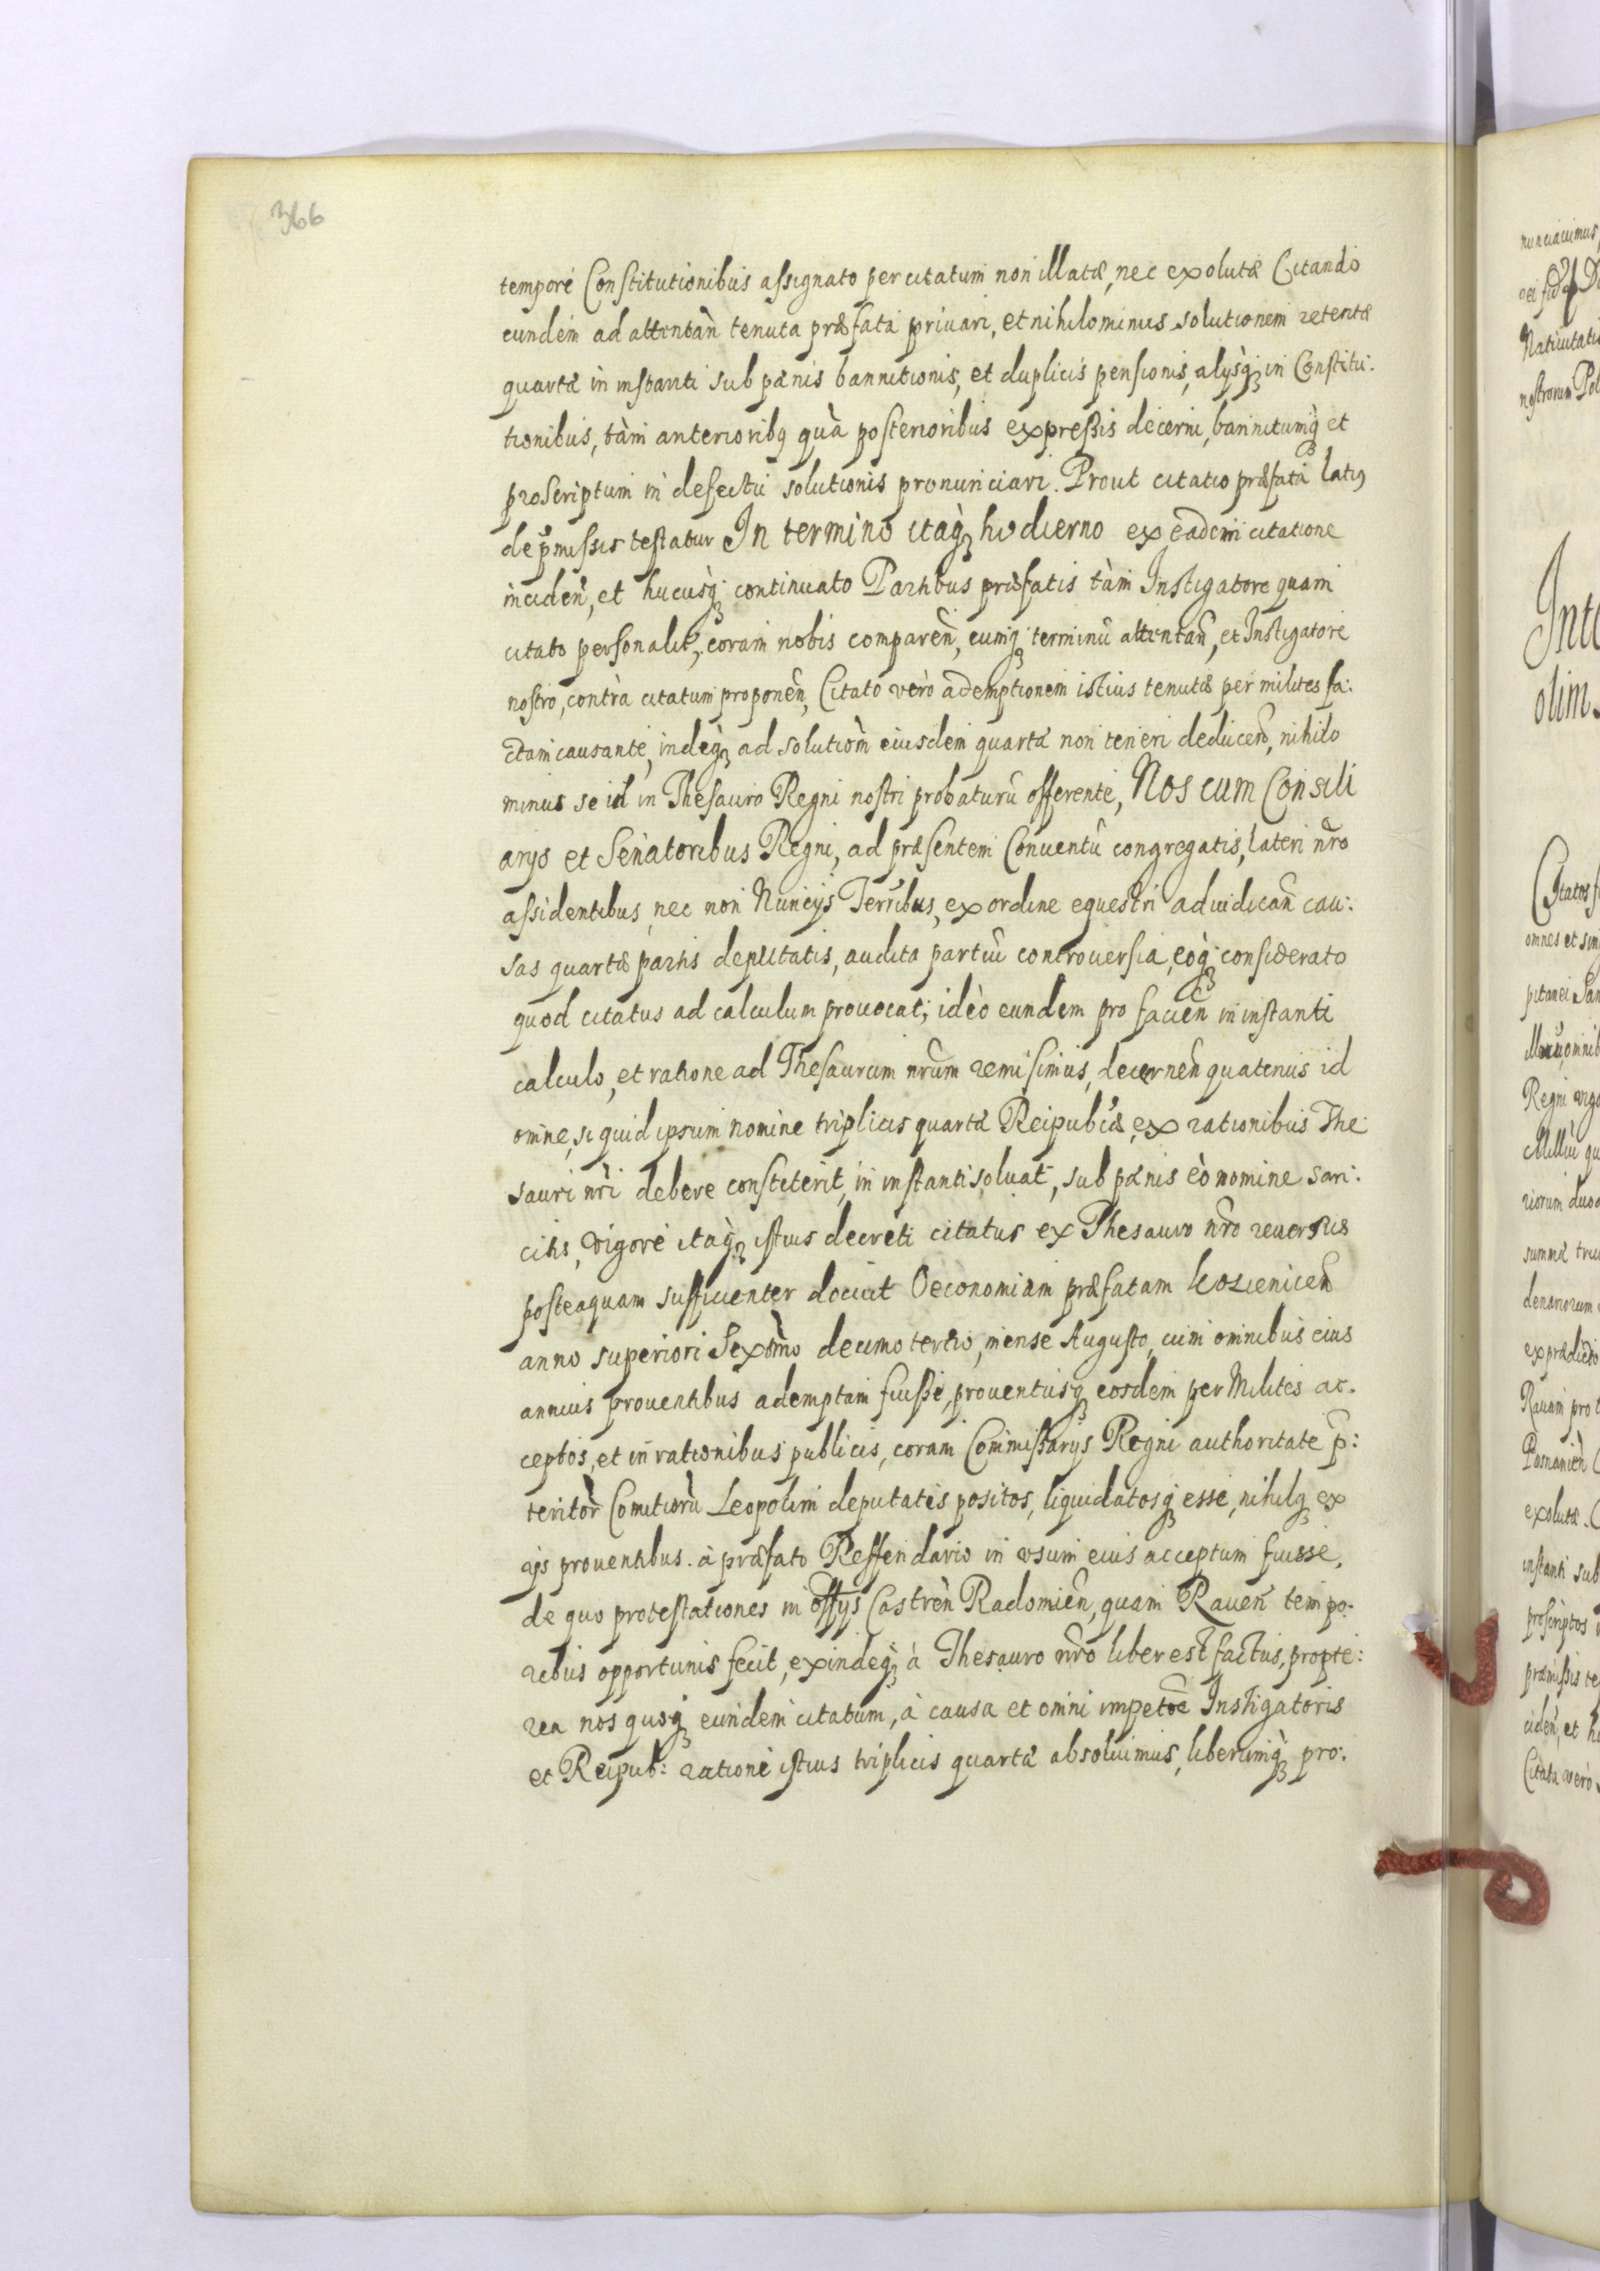 366
tempore Constitutionibus assignato per citatum non illatæ, nec exolutæ Citando
eundem ad attentañ tenuta præfata priuari, et nihilominus solutionem retentæ
quartæ in instanti sub pænis bannitionis, et duplicis pensionis, alysq in Constitu:
tionibus, tàm anterioribq quà posterioribus expressis decerni, bannitumq et
proscriptum in defectu solutionis pronunciari. Prout citatio præfata latiq
de pmissis testatur In termino itaq hodierno ex eadem citatione
inciden, et hucusq continuato Partibus præfatis tàm Instigatore quam
citato personalit, coram nobis comparen, eumq terminu attentan, et Instigatore
nostro, contrà citatum proponen, Citato verò ademptionem istius tenutæ per milites fa:
ctam causante, indeq ad solutiom eiusdem quartæ non teneri deducen, nihilo
minus se id in Thesauro Regni nostri probaturu offerente, Nos cum Consili
arys et Senatoribus Regni, ad præsentem Conuentu congregatis, lateri nro
assidentibus, nec non Nuncys Terribus, ex ordine equestri adiudican cau:
sas quartæ partis deputatis, audita partiu controuersia, eoq considerato
quod citatus ad calculum prouocat; ideò eundem pro facien in instanti
calculo, et ratione ad Thesaurum nrum remisimus, decernen quatenus id
omne, si quid ipsum nomine triplicis quartæ Reipubcæ, ex rationibus The
sauri nri debere constiterit, in instanti soluat, sub pænis eò nomine san:
citis, vigore itaq istius decreti citatus ex Thesauro nro reuersus
posteaquam sufficienter docuit Oeconomiam præfatam Kozienicen
anno superiori Sextòmo decimo tertio, mense Augusto, cum omnibus eius
annuis prouentibus ademptam fuisse, prouentusq eosdem per Milites ac.
ceptos, et in rationibus publicis, coram Commissarys Regni authoritate p:
teritor Comitioru Leopolim deputatis positos, liquidatosq esse, nihilq ex
ijs prouentibus à præfato Refferendario in vsum eius acceptum fuisse,
de quo protestationes in offys Castren Radomien, quam Rauen tempo.
ribus opportunis fecit, exindeq à Thesauro nro liber est factus, propte:
rea nos quoq eundem citatum, à causa et omni impetoe Instigatoris
et Reipub: ratione istius triplicis quartæ absoluimus, liberumq pro:
nunciauimus,
Natiuitatis
nostrorum Pol
Inte
olim
Citatos
omnes et sin
pitanei San
Regni vigo
riorum duo
summæ
denariorum
ex prædicto
Rauam pro
Posnanien
exolutæ. C
instanti sub
proscriptos
præmissis te
ciden, et h
Citata verò